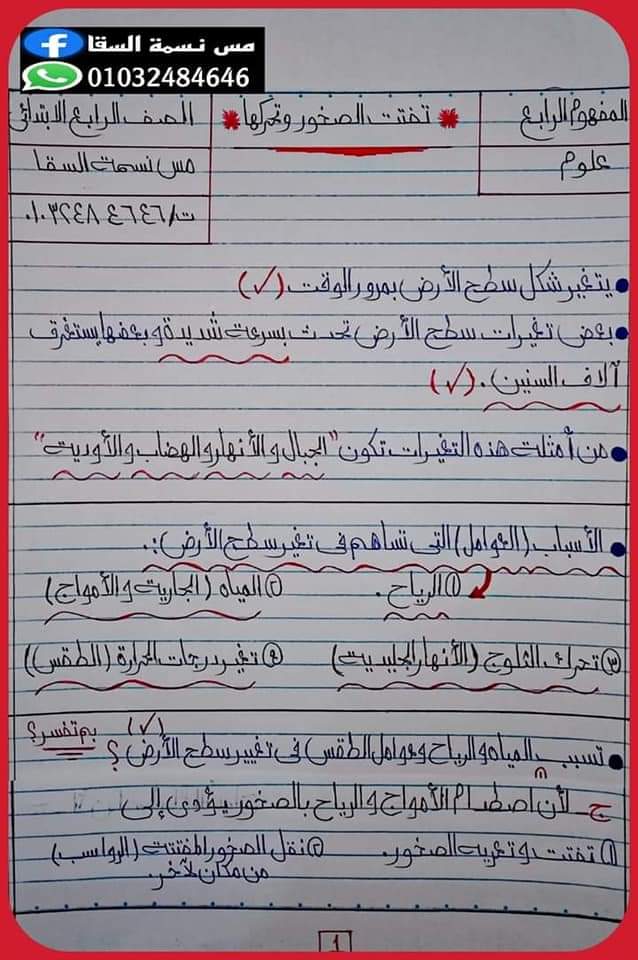 مس نسمة السقا
01032484646
المفهوم الرابع
تفتت الصخور وتحركها
الصف الرابع الابتدائي
علوم
مس نسمة السقا
ت/٠١٠٣٢٤٨٤٦٤٦
يتغير شكل سطح الأرض بمرور الوقت (✓)
بعض تغيرات سطح الأرض تحدث بسرعة شديدة وبعضها يستغرق
آلاف السنين. (✓)
من أمثلة هذه التغيرات تكون "الجبال والأنهار والهضاب والأودية"
الأسباب (العوامل) التي تساهم في تغير سطح الأرض:.
① الرياح. ② المياه (الجارية والأمواج)
③ تحرك الثلوج (الأنهار الجليدية) ④ تغير درجات الحرارة (الطقس)
تسبب المياه والرياح وعوامل الطقس في تغيير سطح الأرض؟ (✓) بم تفسر؟
ج- لأن اصطدام الأمواج والرياح بالصخور يؤدي إلى
① تفتت وتعرية الصخور. ② نقل الصخور المفتتة (الرواسب)
من مكان لآخر.
1